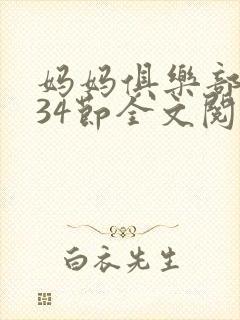 妈妈俱樂部
34節全文閱
白衣先生